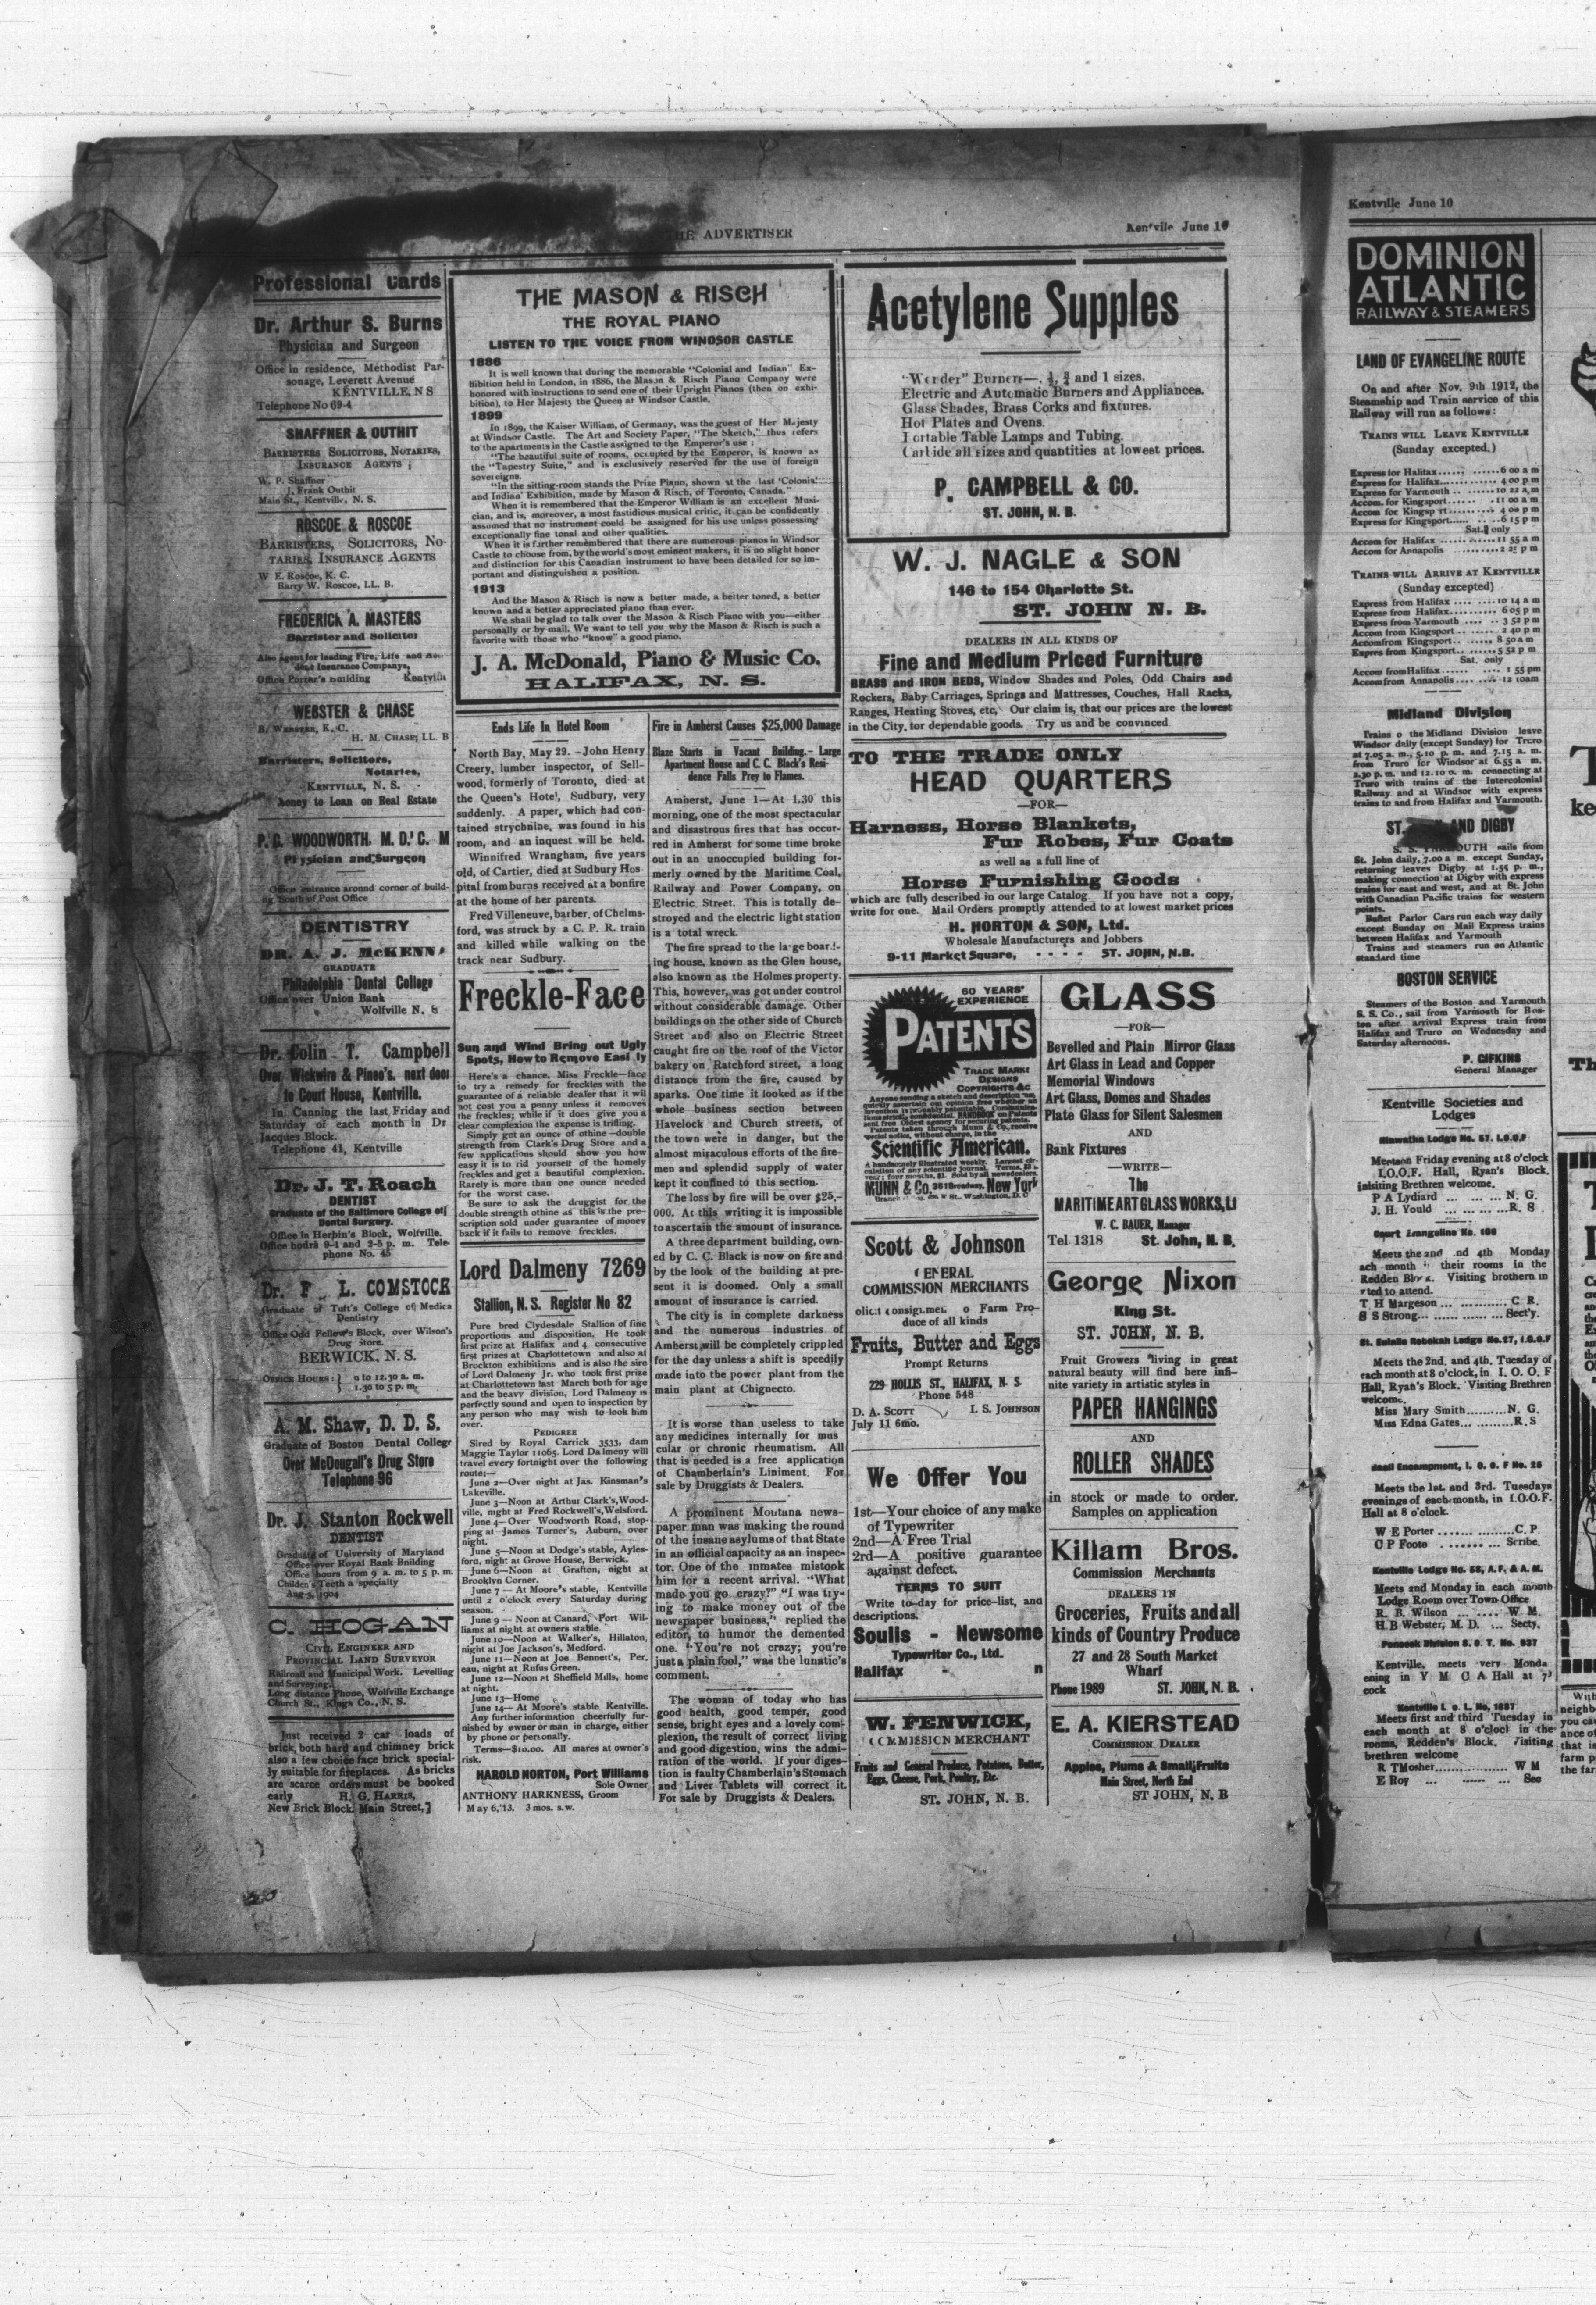 THE ADVERTISER
Kentvile June 10
Professional Cards
Dr. Arthur S. Burns
Physician and Surgeon
Office in residence, Methodist Par-
sonage, Leverett Avenue
KENTVILLE, N S
Telephone No 69-4
SHAFFNER & OUTHIT
BARRISTERS SOLICITORS, NOTARIES,
INSURANCE AGENTS ;
W. P. Shaffner
J. Frank Outhit
Main St., Kentville, N. S.
ROSCOE & ROSCOE
BARRISTERS, SOLICITORS, NO-
TARIES, INSURANCE AGENTS
W E. Roscoe, K. C.
Barry W. Roscoe, LL. B.
FREDERICK A. MASTERS
Barrister and Solicitor
Also Agent for leading Fire, Life and Ac-
Insurance Companys,
Office Porter's Building Kentville
WEBSTER & CHASE
B. WEBSTER, K. C.
H. M. CHASE; LL. B
Barristers, Solicitors,
Notaries,
KENTVILLE, N. S.
Money to Loan on Real Estate
P. C. WOODWORTH, M. D.' C. M
Physician and Surgeon
Office entrance around corner of build-
ing South of Post Office
DENTISTRY
DR. A. J. McKENN
GRADUATE
Philadelphia Dental College
Office over Union Bank
Wolfville N. S
Dr. Colin T. Campbell
Over Wickwire & Pineo's, next door
to Court House, Kentville.
In Canning the last Friday and
Saturday of each month in Dr
Jacques Block.
Telephone 41, Kentville
Dr. J. T. Roach
DENTIST
Graduate of the Baltimore College of
Dental Surgery.
Office in Herbin's Block, Wolfville.
Office hours 9-1 and 2-5 p. m. Tele-
phone No. 45
Dr. F L. COMSTOCK
Graduate of Tuft's College of Medica
Dentistry
Office Odd Fellow's Block, over Wilson's
Drug Store.
BERWICK, N. S.
OFFICE HOURS: } 9 to 12.30 a. m.
1.30 to 5 p. m.
A. M. Shaw, D. D. S.
Graduate of Boston Dental College
Over McDougall's Drug Store
Telephone 96
Dr. J. Stanton Rockwell
DENTIST
Graduate of University of Maryland
Office over Royal Bank Building
Office hours from 9 a. m. to 5 p. m.
Childen's Teeth a specialty
Aug 3, 1904
C. HOGAN
CIVIL ENGINEER AND
PROVINCIAL LAND SURVEYOR
Railroad and Municipal Work. Levelling
and Surveying.
Long distance Phone, Wolfville Exchange
Church St., Kings Co., N. S.
Just received 2 car loads of
brick, both hard and chimney brick
also a few choice face brick special-
ly suitable for fireplaces. As bricks
are scarce orders must be booked
early H. G. HARRIS,
New Brick Block. Main Street,
THE MASON & RISCH
THE ROYAL PIANO
LISTEN TO THE VOICE FROM WINDSOR CASTLE
1886
It is well known that during the memorable "Colonial and Indian" Ex-
hibition held in London, in 1886, the Mason & Risch Piano Company were
honored with instructions to send one of their Upright Pianos (then on exhi-
bition), to Her Majesty the Queen at Windsor Castle.
1899
In 1899, the Kaiser William, of Germany, was the guest of Her Majesty
at Windsor Castle. The Art and Society Paper, "The Sketch," thus refers
to the apartments in the Castle assigned to the Emperor's use :
"The beautiful suite of rooms, occupied by the Emperor, is known as
the "Tapestry Suite," and is exclusively reserved for the use of foreign
sovereigns.
"In the sitting-room stands the Prize Piano, shown at the last 'Colonial
and Indian' Exhibition, made by Mason & Risch, of Toronto, Canada."
When it is remembered that the Emperor William is an excellent Musi-
cian, and is, moreover, a most fastidious musical critic, it can be confidently
assumed that no instrument could be assigned for his use unless possessing
exceptionally fine tonal and other qualities.
When it is further remembered that there are numerous pianos in Windsor
Castle to choose from, by the world's most eminent makers, it is no slight honor
and distinction for this Canadian instrument to have been detailed for so im-
portant and distinguished a position.
1913
And the Mason & Risch is now a better made, a better toned, a better
known and a better appreciated piano than ever.
We shall be glad to talk over the Mason & Risch Piano with you—either
personally or by mail. We want to tell you why the Mason & Risch is such a
favorite with those who "know" a good piano.
J. A. McDonald, Piano & Music Co.
HALIFAX, N. S.
Ends Life In Hotel Room
North Bay, May 29. -John Henry
Creery, lumber inspector, of Sell-
wood, formerly of Toronto, died at
the Queen's Hotel, Sudbury, very
suddenly. A paper, which had con-
tained strychnine, was found in his
room, and an inquest will be held.
Winnifred Wrangham, five years
old, of Cartier, died at Sudbury Hos
pital from burns received at a bonfire
at the home of her parents.
Fred Villeneuve, barber, of Chelms-
ford, was struck by a C. P. R. train
and killed while walking on the
track near Sudbury.
Freckle-Face
Sun and Wind Bring out Ugly
Spots, How to Remove Easi ly
Here's a chance, Miss Freckle-face
to try a remedy for freckles with the
guarantee of a reliable dealer that it wil
not cost you a penny unless it removes
the freckles; while if it does give you a
clear complexion the expense is trifling.
Simply get an ounce of othine—double
strength from Clark's Drug Store and a
few applications should show you how
easy it is to rid yourself of the homely
freckles and get a beautiful complexion.
Rarely is more than one ounce needed
for the worst case.
Be sure to ask the druggist for the
double strength othine as this is the pre-
scription sold under guarantee of money
back if it fails to remove freckles.
Lord Dalmeny 7269
Stallion, N.S. Register No 82
Pure bred Clydesdale Stallion of fine
proportions and disposition. He took
first prize at Halifax and 4 consecutive
first prizes at Charlottetown and also at
Brockton exhibitions and is also the sire
of Lord Dalmeny Jr. who took first prize
at Charlottetown last March both for age
and the heavy division, Lord Dalmeny is
perfectly sound and open to inspection by
any person who may wish to look him
over.
PEDIGREE
Sired by Royal Carrick 3533, dam
Maggie Taylor 11065. Lord Dalmeny will
travel every fortnight over the following
route;—
June 2—Over night at Jas. Kinsman's
Lakeville.
June 3—Noon at Arthur Clark's, Wood-
ville, night at Fred Rockwell's, Welsford.
June 4—Over Woodworth Road, stop-
ping at James Turner's, Auburn, over
night.
June 5—Noon at Dodge's stable, Ayles-
ford, night at Grove House, Berwick.
June 6—Noon at Grafton, night at
Brooklyn Corner.
June 7 — At Moore's stable, Kentville
until 2 o'clock every Saturday during
season.
June 9 — Noon at Canard, Port Wil-
liams at night at owners stable
June 10—Noon at Walker's, Hillaton,
night at Joe Jackson's, Medford.
June 11—Noon at Joe Bennett's, Per-
eau, night at Rufus Green.
June 12—Noon at Sheffield Mills, home
at night.
June 13—Home
June 14— At Moore's stable Kentville.
Any further information cheerfully fur-
nished by owner or man in charge, either
by phone or personally.
Terms—$10.00. All mares at owner's
risk.
HAROLD NORTON, Port Williams
Sole Owner
ANTHONY HARKNESS, Groom
May 6,'13. 3 mos. s.w.
Fire in Amherst Causes $25,000 Damage
Blaze Starts in Vacant Building.- Large
Apartment House and C. C. Black's Resi-
dence Falls Prey to Flames.
Amherst, June 1—At 1.30 this
morning, one of the most spectacular
and disastrous fires that has occur-
red in Amherst for some time broke
out in an unoccupied building for-
merly owned by the Maritime Coal,
Railway and Power Company, on
Electric Street. This is totally de-
stroyed and the electric light station
is a total wreck.
The fire spread to the large board-
ing house, known as the Glen house,
also known as the Holmes property.
This, however, was got under control
without considerable damage. Other
buildings on the other side of Church
Street and also on Electric Street
caught fire on the roof of the Victor
bakery on Ratchford street, a long
distance from the fire, caused by
sparks. One time it looked as if the
whole business section between
Havelock and Church streets, of
the town were in danger, but the
almost miraculous efforts of the fire-
men and splendid supply of water
kept it confined to this section.
The loss by fire will be over $25,-
000. At this writing it is impossible
to ascertain the amount of insurance.
A three department building, own-
ed by C. C. Black is now on fire and
by the look of the building at pre-
sent it is doomed. Only a small
amount of insurance is carried.
The city is in complete darkness
and the numerous industries of
Amherst will be completely crippled
for the day unless a shift is speedily
made into the power plant from the
main plant at Chignecto.
It is worse than useless to take
any medicines internally for mus
cular or chronic rheumatism. All
that is needed is a free application
of Chamberlain's Liniment. For
sale by Druggists & Dealers.
A prominent Moutana news-
paper man was making the round
of the insane asylums of that State
in an official capacity as an inspec-
tor. One of the inmates mistook
him for a recent arrival. "What
made you go crazy?" "I was try-
ing to make money out of the
newspaper business," replied the
editor, to humor the demented
one. "You're not crazy; you're
just a plain fool," was the lunatic's
comment.
The woman of today who has
good health, good temper, good
sense, bright eyes and a lovely com-
plexion, the result of correct living
and good digestion, wins the admi-
ration of the world. If your diges-
tion is faulty Chamberlain's Stomach
and Liver Tablets will correct it.
For sale by Druggists & Dealers.
Acetylene Supples
Burners—, ½, ¾ and 1 sizes.
Electric and Automatic Burners and Appliances.
Glass Shades, Brass Corks and fixtures.
Hot Plates and Ovens.
Portable Table Lamps and Tubing.
Carbide all sizes and quantities at lowest prices.
P. CAMPBELL & CO.
ST. JOHN, N. B.
W. J. NAGLE & SON
146 to 154 Charlotte St.
ST. JOHN N. B.
DEALERS IN ALL KINDS OF
Fine and Medium Priced Furniture
BRASS and IRON BEDS, Window Shades and Poles, Odd Chairs and
Rockers, Baby Carriages, Springs and Mattresses, Couches, Hall Racks,
Ranges, Heating Stoves, etc, Our claim is, that our prices are the lowest
in the City, for dependable goods. Try us and be convinced
TO THE TRADE ONLY
HEAD QUARTERS
—FOR—
Harness, Horse Blankets,
Fur Robes, Fur Coats
as well as a full line of
Horse Furnishing Goods
which are fully described in our large Catalog. If you have not a copy,
write for one. Mail Orders promptly attended to at lowest market prices
H. HORTON & SON, Ltd.
Wholesale Manufacturers and Jobbers
9-11 Market Square, - - - - ST. JOHN, N.B.
60 YEARS'
EXPERIENCE
PATENTS
TRADE MARKS
DESIGNS
COPYRIGHTS &C
Anyone sending a sketch and description may
quickly ascertain our opinion free whether an
invention is probably patentable. Communica-
tions strictly confidential. HANDBOOK on Patents
sent free. Oldest agency for securing patents.
Patents taken through Munn & Co. receive
special notice, without charge, in the
Scientific American.
A handsomely illustrated weekly. Largest cir-
culation of any scientific journal. Terms, $3 a
year; four months, $1. Sold by all newsdealers.
MUNN & Co. 361 Broadway, New York
Branch St., Washington, D. C
Scott & Johnson
GENERAL
COMMISSION MERCHANTS
olicit consignmen o Farm Pro-
duce of all kinds
Fruits, Butter and Eggs
Prompt Returns
229 HOLLIS ST., HALIFAX, N. S.
Phone 548
D. A. SCOTT I. S. JOHNSON
July 11 6mo.
We Offer You
1st—Your choice of any make
of Typewriter
2nd—A Free Trial
2rd—A positive guarantee
against defect.
TERMS TO SUIT
Write to-day for price-list, and
descriptions.
Soulis - Newsome
Typewriter Co., Ltd.
Halifax - n
W. FENWICK,
COMMISSICN MERCHANT
Fruits and General Produce, Potatoes, Butter,
Eggs, Cheese, Pork, Poultry, Etc.
ST. JOHN, N. B.
GLASS
—FOR—
Bevelled and Plain Mirror Glass
Art Glass in Lead and Copper
Memorial Windows
Art Glass, Domes and Shades
Plate Glass for Silent Salesmen
AND
Bank Fixtures
—WRITE—
The
MARITIME ART GLASS WORKS, Lt
W. C. BAUER, Manager
Tel 1318 St. John, N. B.
George Nixon
King St.
ST. JOHN, N. B.
Fruit Growers living in great
natural beauty will find here infi-
nite variety in artistic styles in
PAPER HANGINGS
AND
ROLLER SHADES
in stock or made to order.
Samples on application
Killam Bros.
Commission Merchants
DEALERS IN
Groceries, Fruits and all
kinds of Country Produce
27 and 28 South Market
Wharf
Phone 1989 ST. JOHN, N. B.
E. A. KIERSTEAD
COMMISSION DEALER
Apples, Plums & Small Fruits
Main Street, North End
ST JOHN, N. B
Kentville June 10
DOMINION
ATLANTIC
RAILWAY & STEAMERS
LAND OF EVANGELINE ROUTE
On and after Nov. 9th 1912, the
Steamship and Train service of this
Railway will run as follows:
TRAINS WILL LEAVE KENTVILLE
(Sunday excepted.)
Express for Halifax......6 00 a m
Express for Halifax......4 00 p m
Express for Yarmouth......10 22 a m
Accom. for Kingsport......11 00 a m
Accom for Kingsport......4 00 p m
Express for Kingsport......6 15 p m
Sat. only
Accom for Halifax......11 55 a m
Accom for Annapolis......2 25 p m
TRAINS WILL ARRIVE AT KENTVILLE
(Sunday excepted)
Express from Halifax......10 14 a m
Express from Halifax......6 05 p m
Express from Yarmouth......3 52 p m
Accom from Kingsport......2 40 p m
Accom from Kingsport......8 50 a m
Express from Kingsport......5 52 p m
Sat. only
Accom from Halifax......1 55 pm
Accom from Annapolis......12 10am
Midland Division
Trains o the Midland Division leave
Windsor daily (except Sunday) for Truro
at 7.05 a. m., 5.10 p. m. and 7.15 a. m.
from Truro for Windsor at 6.55 a m.
2.30 p. m. and 12.10 o. m. connecting at
Truro with trains of the Intercolonial
Railway and at Windsor with express
trains to and from Halifax and Yarmouth.
ST. AND DIGBY
S. S. YARMOUTH sails from
St. John daily, 7.00 a m. except Sunday,
returning leaves Digby at 1.55 p. m.,
making connection at Digby with express
trains for east and west, and at St. John
with Canadian Pacific trains for western
points.
Buffet Parlor Cars run each way daily
except Sunday on Mail Express trains
between Halifax and Yarmouth
Trains and steamers run on Atlantic
standard time
BOSTON SERVICE
Steamers of the Boston and Yarmouth
S. S. Co., sail from Yarmouth for Bos-
ton after arrival Express train from
Halifax and Truro on Wednesday and
Saturday afternoons.
P. GIFKINS
General Manager
Kentville Societies and
Lodges
Hiawatha Lodge No. 57. I.O.O.F
Meets on Friday evening at 8 o'clock
I.O.O.F. Hall, Ryan's Block.
Visiting Brethren welcome.
P A Lydiard ... ... ... N. G.
J. H. Yould ... ... ... R. S
Court Evangeline No. 100
Meets the 2nd nd 4th Monday
ach month their rooms in the
Redden Block. Visiting brothern in
vited to attend.
T H Margeson ... ... C R.
S S Strong... ... ... Sect'y.
St. Eulalie Rebekah Lodge No.27, I.O.O.F
Meets the 2nd. and 4th. Tuesday of
each month at 8 o'clock, in I. O. O. F
Hall, Ryan's Block. Visiting Brethren
welcome.
Miss Mary Smith.........N. G.
Miss Edna Gates.........R. S
Encampment, I. O. O. F No. 25
Meets the 1st. and 3rd. Tuesdays
evenings of each month, in I.O.O.F.
Hall at 8 o'clock.
W E Porter.........C. P.
C P Foote.........Scribe.
Kentville Lodge No. 58, A.F. & A. M.
Meets and Monday in each month
Lodge Room over Town Office
R. B. Wilson ... ... W. M.
H. B Webster, M. D. ... Secty.
Division S. O. T. No. 837
Kentville, meets very Monda
ening in Y M C A Hall at 7
cock
Kentville L o L. No, 1887
Meets first and third Tuesday in
each month at 8 o'clocl in the
rooms, Redden's Block. Visiting
brethren welcome
R T Mosher......W M
E Roy ... ... ... Sec